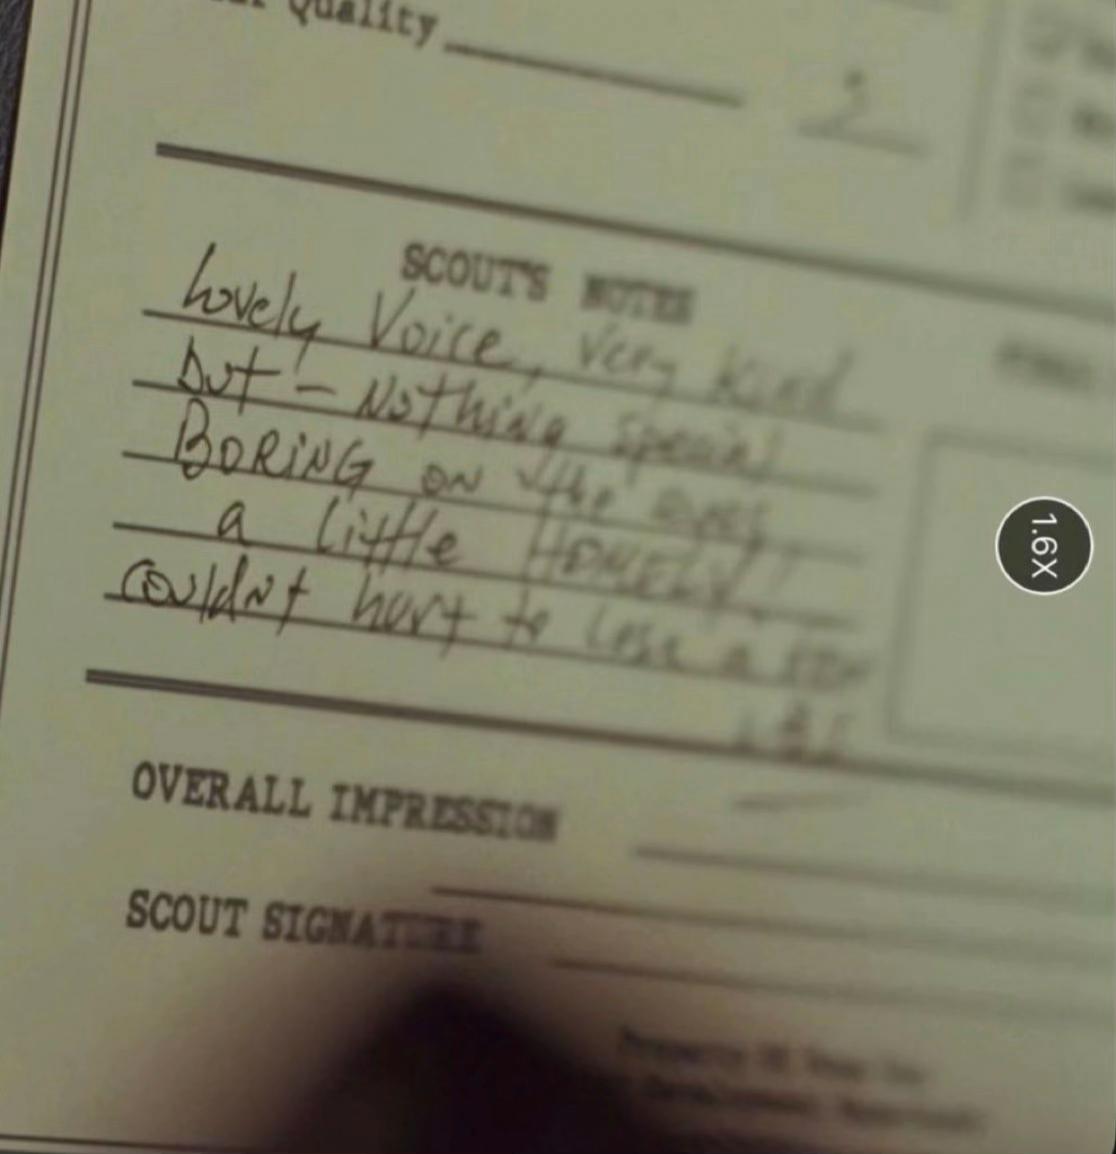 Quality
3
SCOUT'S NOTES
Lovely Voice, Very Kind
but - Nothing Special
BORING ON the eyes,
a little HOMELY!
Couldn't hurt to lose a few
LBS
OVERALL IMPRESSION
SCOUT SIGNATURE
1.6X